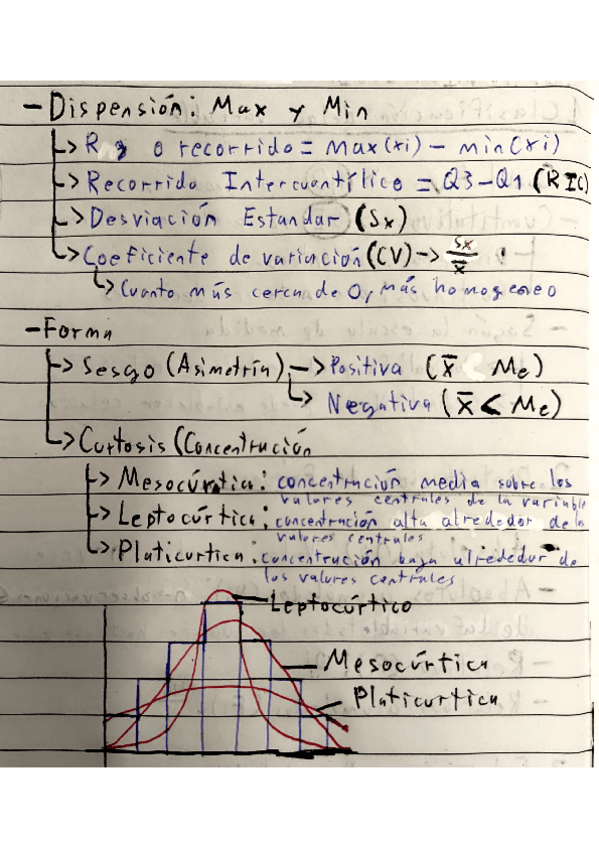 - Dispensión: Max y Min
↳ R o recorrido = Max(xi) - min(xi)
↳ Recorrido Intercuantílico = Q3 - Q1 (RIC)
↳ Desviación Estandar (Sx)
↳ Coeficiente de variación (CV) -> Sx/x̄
↳ Cuanto más cerca de 0, más homogeneo
- Forma
↳ Sesgo (Asimetría) -> Positiva (x̄ < Me)
↳ Negativa (x̄ < Me)
↳ Curtosis (Concentración
↳ Mesocúrtica: concentración media sobre los
valores centrales de la variable
↳ Leptocúrtica: concentración alta alrededor de los
valores centrales
↳ Platicurtica: concentración baja alrededor de
los valores centrales
Leptocúrtico
Mesocúrtica
Platicurtica